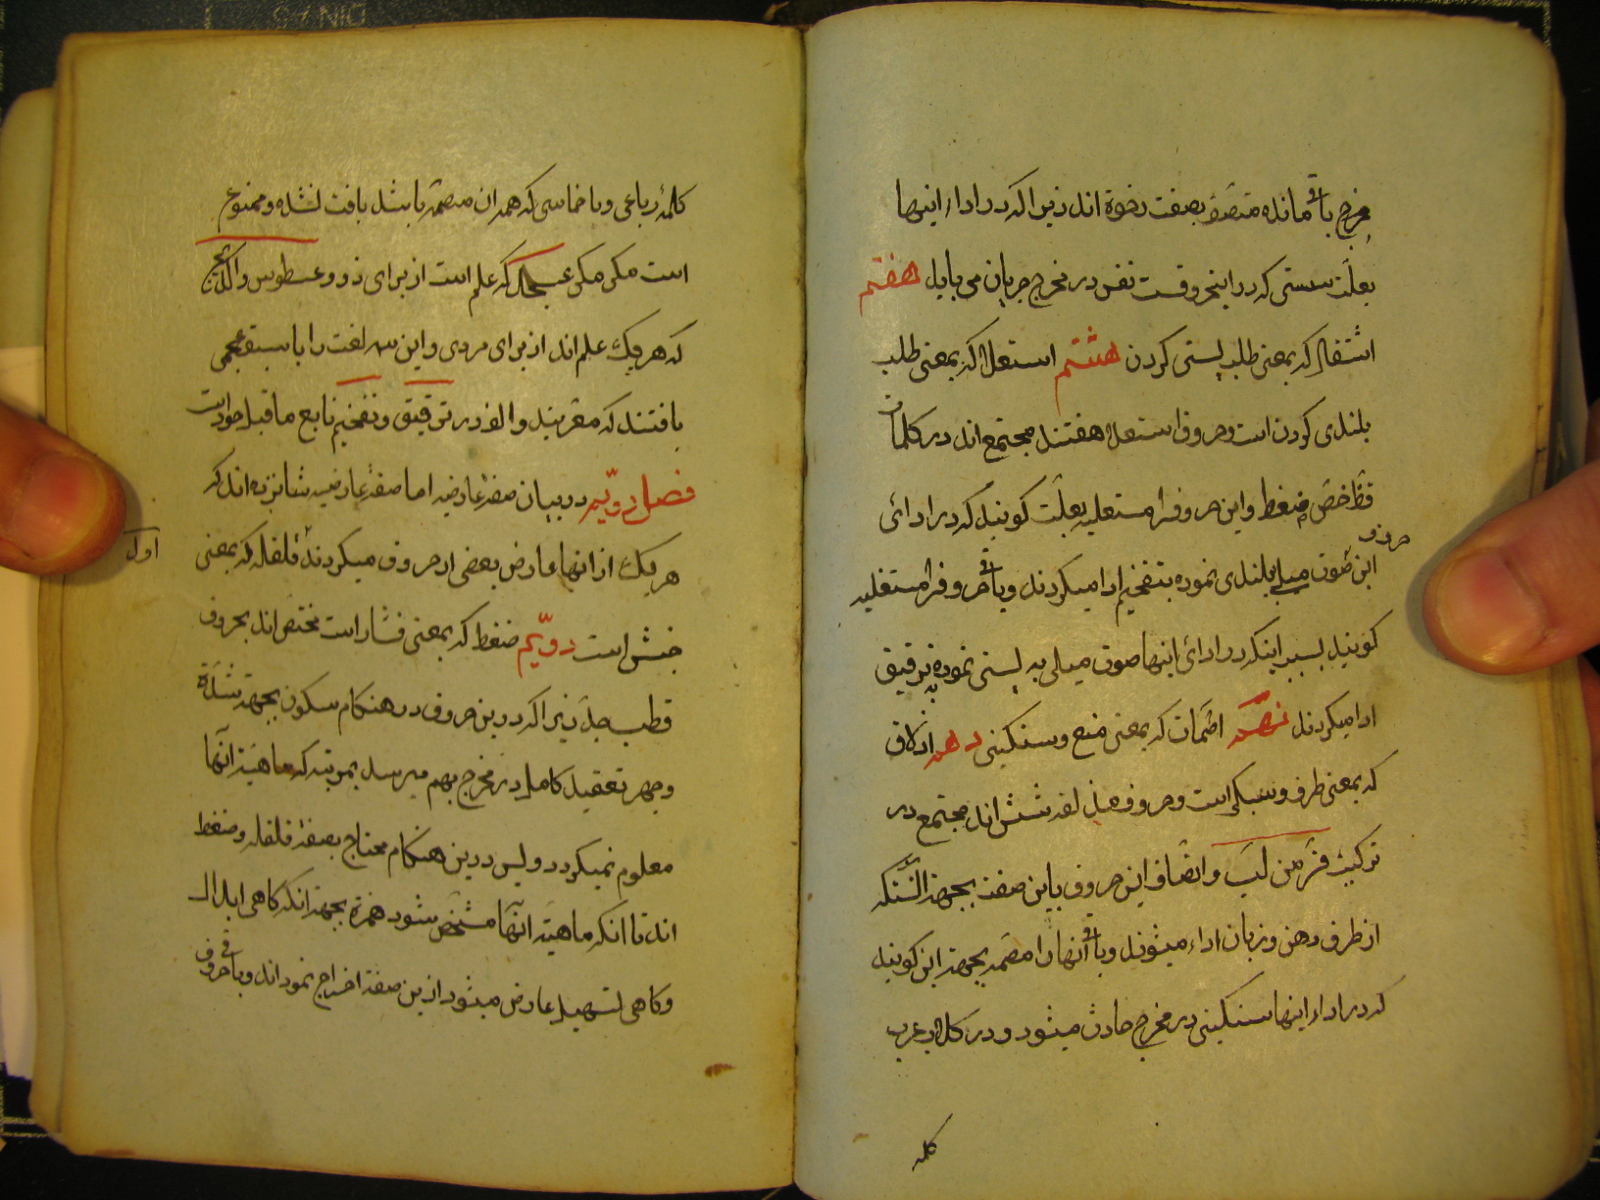 مخرج باقی مانده متصف بصفت رخوة اند زیرا که در اداء اینها
بعلّت سستی که در اینحروفست نفس در مخرج جریان می یابد هفتم
استفال که بمعنی طلب پستی کردن هشتم استعلا که بمعنی طلب
بلندی کردن است و حروف استعلا هفتند مجتمع اند در کلمات
قظ خص ضغط و این حروفرا مستعلیه بعلّت کویند که در ادائ
حروف
این صوت میل ببلندی نموده بتفخیم ادا میکردند و باقی حروفرا مستفلیه
کویند بسبب اینکه در ادائ اینها صوت میلی به پستی نموده بترقیق
ادا میکردند نهم اصمات که بمعنی منع و سنکینی دهم اذلاق
که بمعنی طرف و سبکی است و حروف مذلقه شش اند مجتمع در
ترکیب فرّ من لبّ و اتصاف این حروف باین صفت بجهة آنستکه
از طرف دهن و زبان اداء میشوند و باقی آنها را مصمته بجهة این کویند
که در اداء اینها سنکینی در مخرج حادث میشود و در کلام عرب
کلمه
کلمهٔ رباعی و یا خماسی که همه ان مصمته باشد یافت نشده و ممنوع
است مکر مکر عسجد که علم است از برای زر و عسطوس والکلنج
که هر یک علم اند از برای مردی و این سه لغت را با سبقه عجمی
یافتند که معربند و الف در ترقیق و تفخیم تابع ما قبل خود است
فصل دویم در بیان صفة عارضه اما صفة عارضیه شانزده اند که
هر یک از انها عارض بعضی از حروف میکردند قلقله که بمعنی
اول
جنبش است دویم ضغط که بمعنی فشار است مختص اند بحروف
قطب جد زیرا که در این حروف در هنکام سکون بجهة شدّة
و جهر تعقید کامل در مخرج بهم میرسد بمرتبه که ماهیّة آنها
معلوم نمیکردد و لیس در این هنکام محتاج بصفة قلقله و ضغط
اند تا انکه ماهیّة آنها مشخص شود همزه بجهة انکه کاهی ابدال
و کاهی تسهیل عارض میشود از این صفة اخراج نموداند و باقی حروف